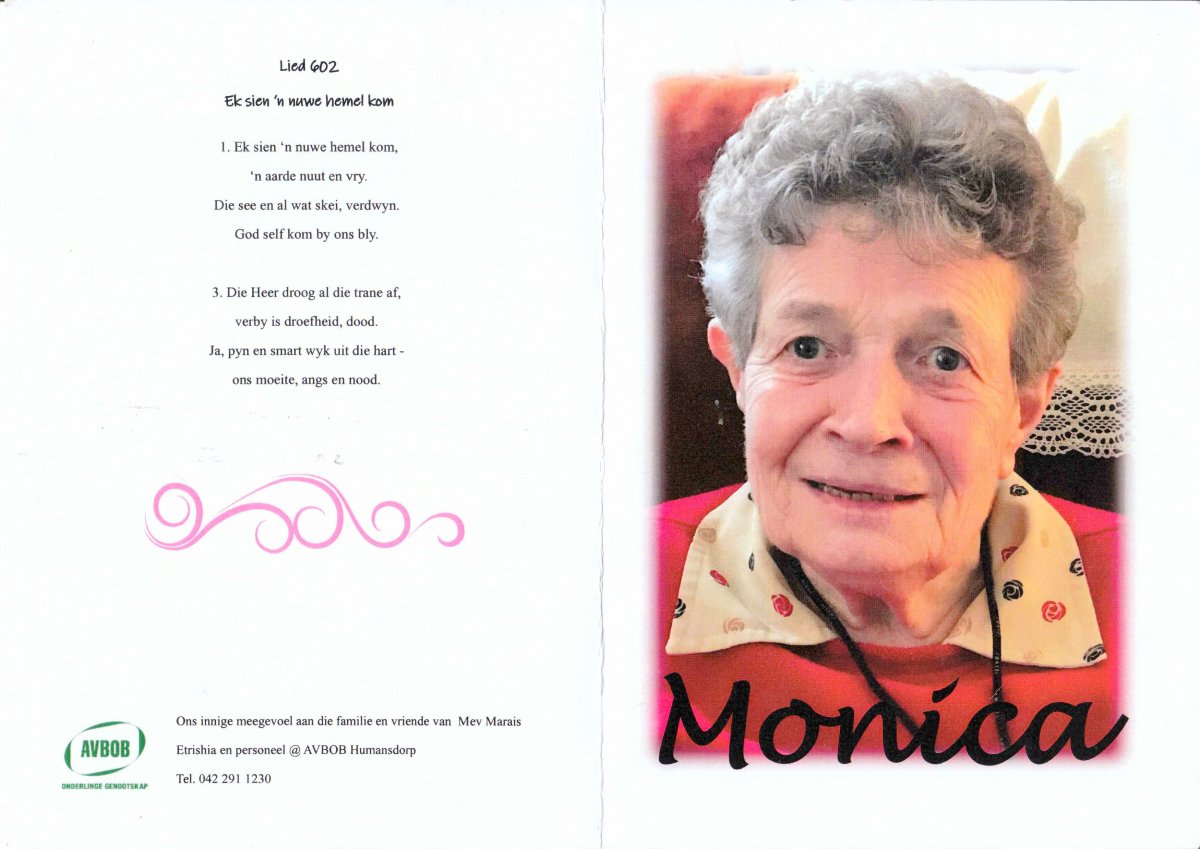 Lied 602
Ek sien 'n nuwe hemel kom
1. Ek sien ‘n nuwe hemel kom,
‘n aarde nuut en vry.
Die see en al wat skei, verdwyn.
God self kom by ons bly.
3. Die Heer droog al die trane af,
verby is droefheid, dood.
Ja, pyn en smart wyk uit die hart -
ons moeite, angs en nood.
AVBOB
ONDERLINGE GENOOTSKAP
Ons innige meegevoel aan die familie en vriende van Mev Marais
Etrishia en personeel @ AVBOB Humansdorp
Tel. 042 291 1230
Monica